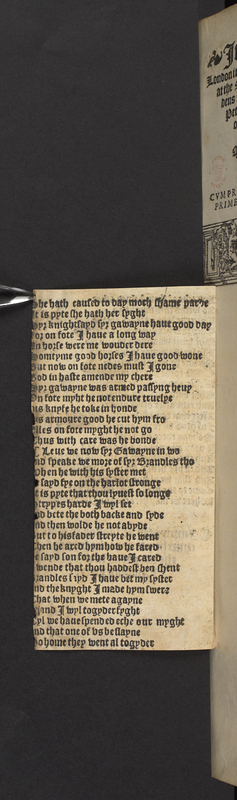 he hath caused to day moch shame parde
t is pyte she hath her syght
yr knight sayd syr gawayne haue good day
or on fote I haue a long way
n horse were me wonder dere
omtyme good horses I haue good wone
ut now on fote nedes must I gone
od in haste amende my chere
yr gawayne was armed passyng heuy
n fote myht he not endure truelye
is knyfe he toke in honde
is armoure good he cut hym fro
lles on fote myght he not go
hus with care was he bonde
Leue we now syr Gawayne in wo
nd speake we more of syr Brandles tho
hen he with his syster met
sayd fye on the harlot stronge
t is pyte that thou lyuest so longe
trypes harde I wyl set
d bete the both backe and syde
nd then wolde he not abyde
ut to his fader streyte he went
hen he axed hym how he fared
e sayd son for the haue I cared
wende that thou haddest ben shent
randles sayd I haue bet my syster
nd the knyght I made hym swere
hat when we mete agayne
and I wyl togyder fyght
yl we haue spended eche our myght
nd that one of vs be slayne
o home they went al togyder
London in
at the s
dens
Pet
CVMPR
PRIME